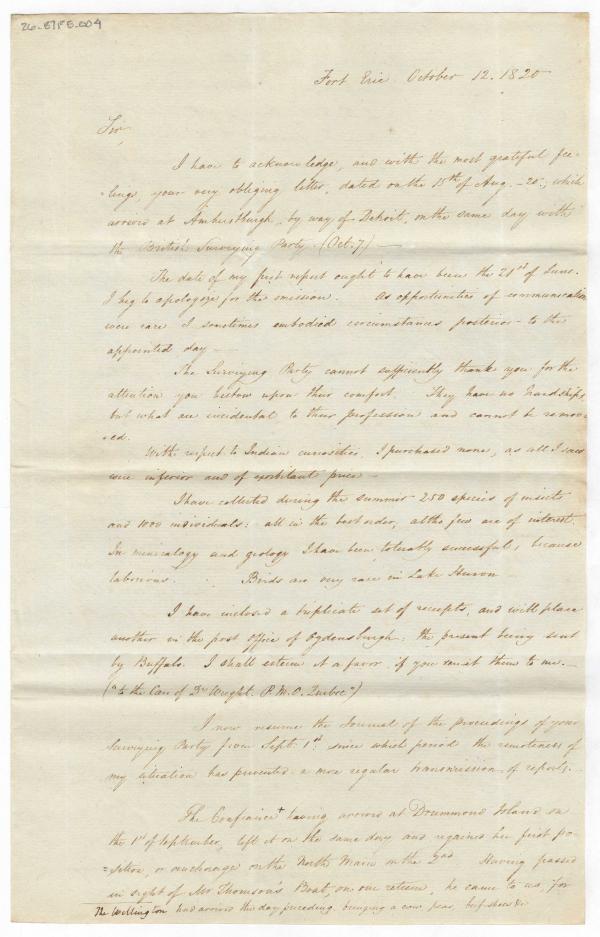 26-BTFB.004
Fort Erie October 12. 1820
Sir,
I have to acknowledge, and with the most grateful fee-
-lings, your very obliging letter, dated on the 15th of Aug. -20-, which
arrived at Amherstburgh, by way of Detroit, on the same day with
the British Surveying Party (Oct. 7) —
The date of my first report ought to have been the 21st of June.
I beg to apologize for the omission. As opportunities of communication
were rare I sometimes embodied circumstances posterior to the
appointed day —
The Surveying Party cannot sufficiently thank you for the
attention you bestow upon their comfort. They have no hardships
but what are incidental to their profession and cannot be remov-
-ed.
With respect to Indian curiosities, I purchased none, as all I saw
were inferior and of exorbitant price —
I have collected during the summer 250 species of insects
and 1000 individuals: all in the best order, altho few are of interest.
In mineralogy and geology I have been tolerably successful, because
laborious. Birds are very rare in Lake Huron
I have inclosed a duplicate set of receipts, and will place
another in the post office of Ogdensburgh; the present being sent
by Buffalo. I shall esteem it a favor, if you remit them to me. —
("to the Care of Dr Wright. P.M.O. Quebec")
I now resume the Journal of the proceedings of your
Surveying Party from Sept. 1st: since which period the remoteness of
my situation has prevented a more regular transmission of reports. —
The Confiance + having arrived at Drummond Island on
the 1st of September, left it on the same day and regained her first po-
=sition, or anchorage on the North Main on the 2nd Having passed
in sight of Mr Thomson's Boat, on our return, he came to us, for
The Wellington had arrived the day preceding bringing a cow, peas, beef, shoes &c